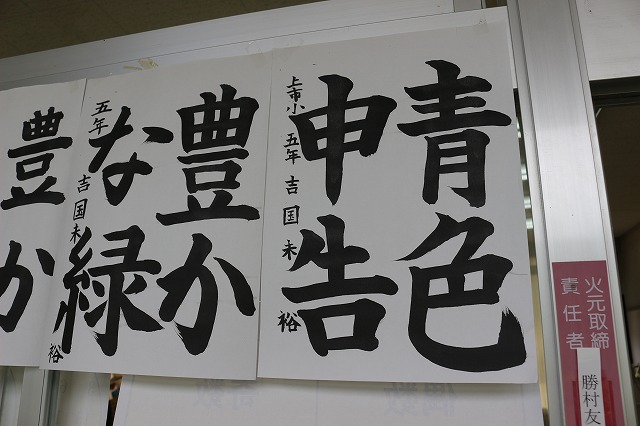 青色
申告
上市小 五年 吉国未裕
豊か
な緑
五年 吉国未裕
豊か
火元取締
責任者
勝村友